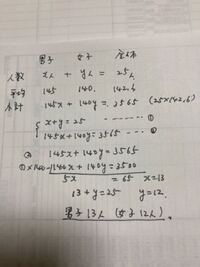 男子 女子 全体
人数 x人 + y人 = 25人
平均 145 140. 142.6
合計 145x + 140y = 3565 (25×142.6)
{ x+y=25 ------- ①
145x+140y=3565 ---- ②
② 145x+140y=3565
①×140 -) 140x+140y=3500
5x = 65 x=13
13+y=25 y=12.
男子13人 (女子12人)